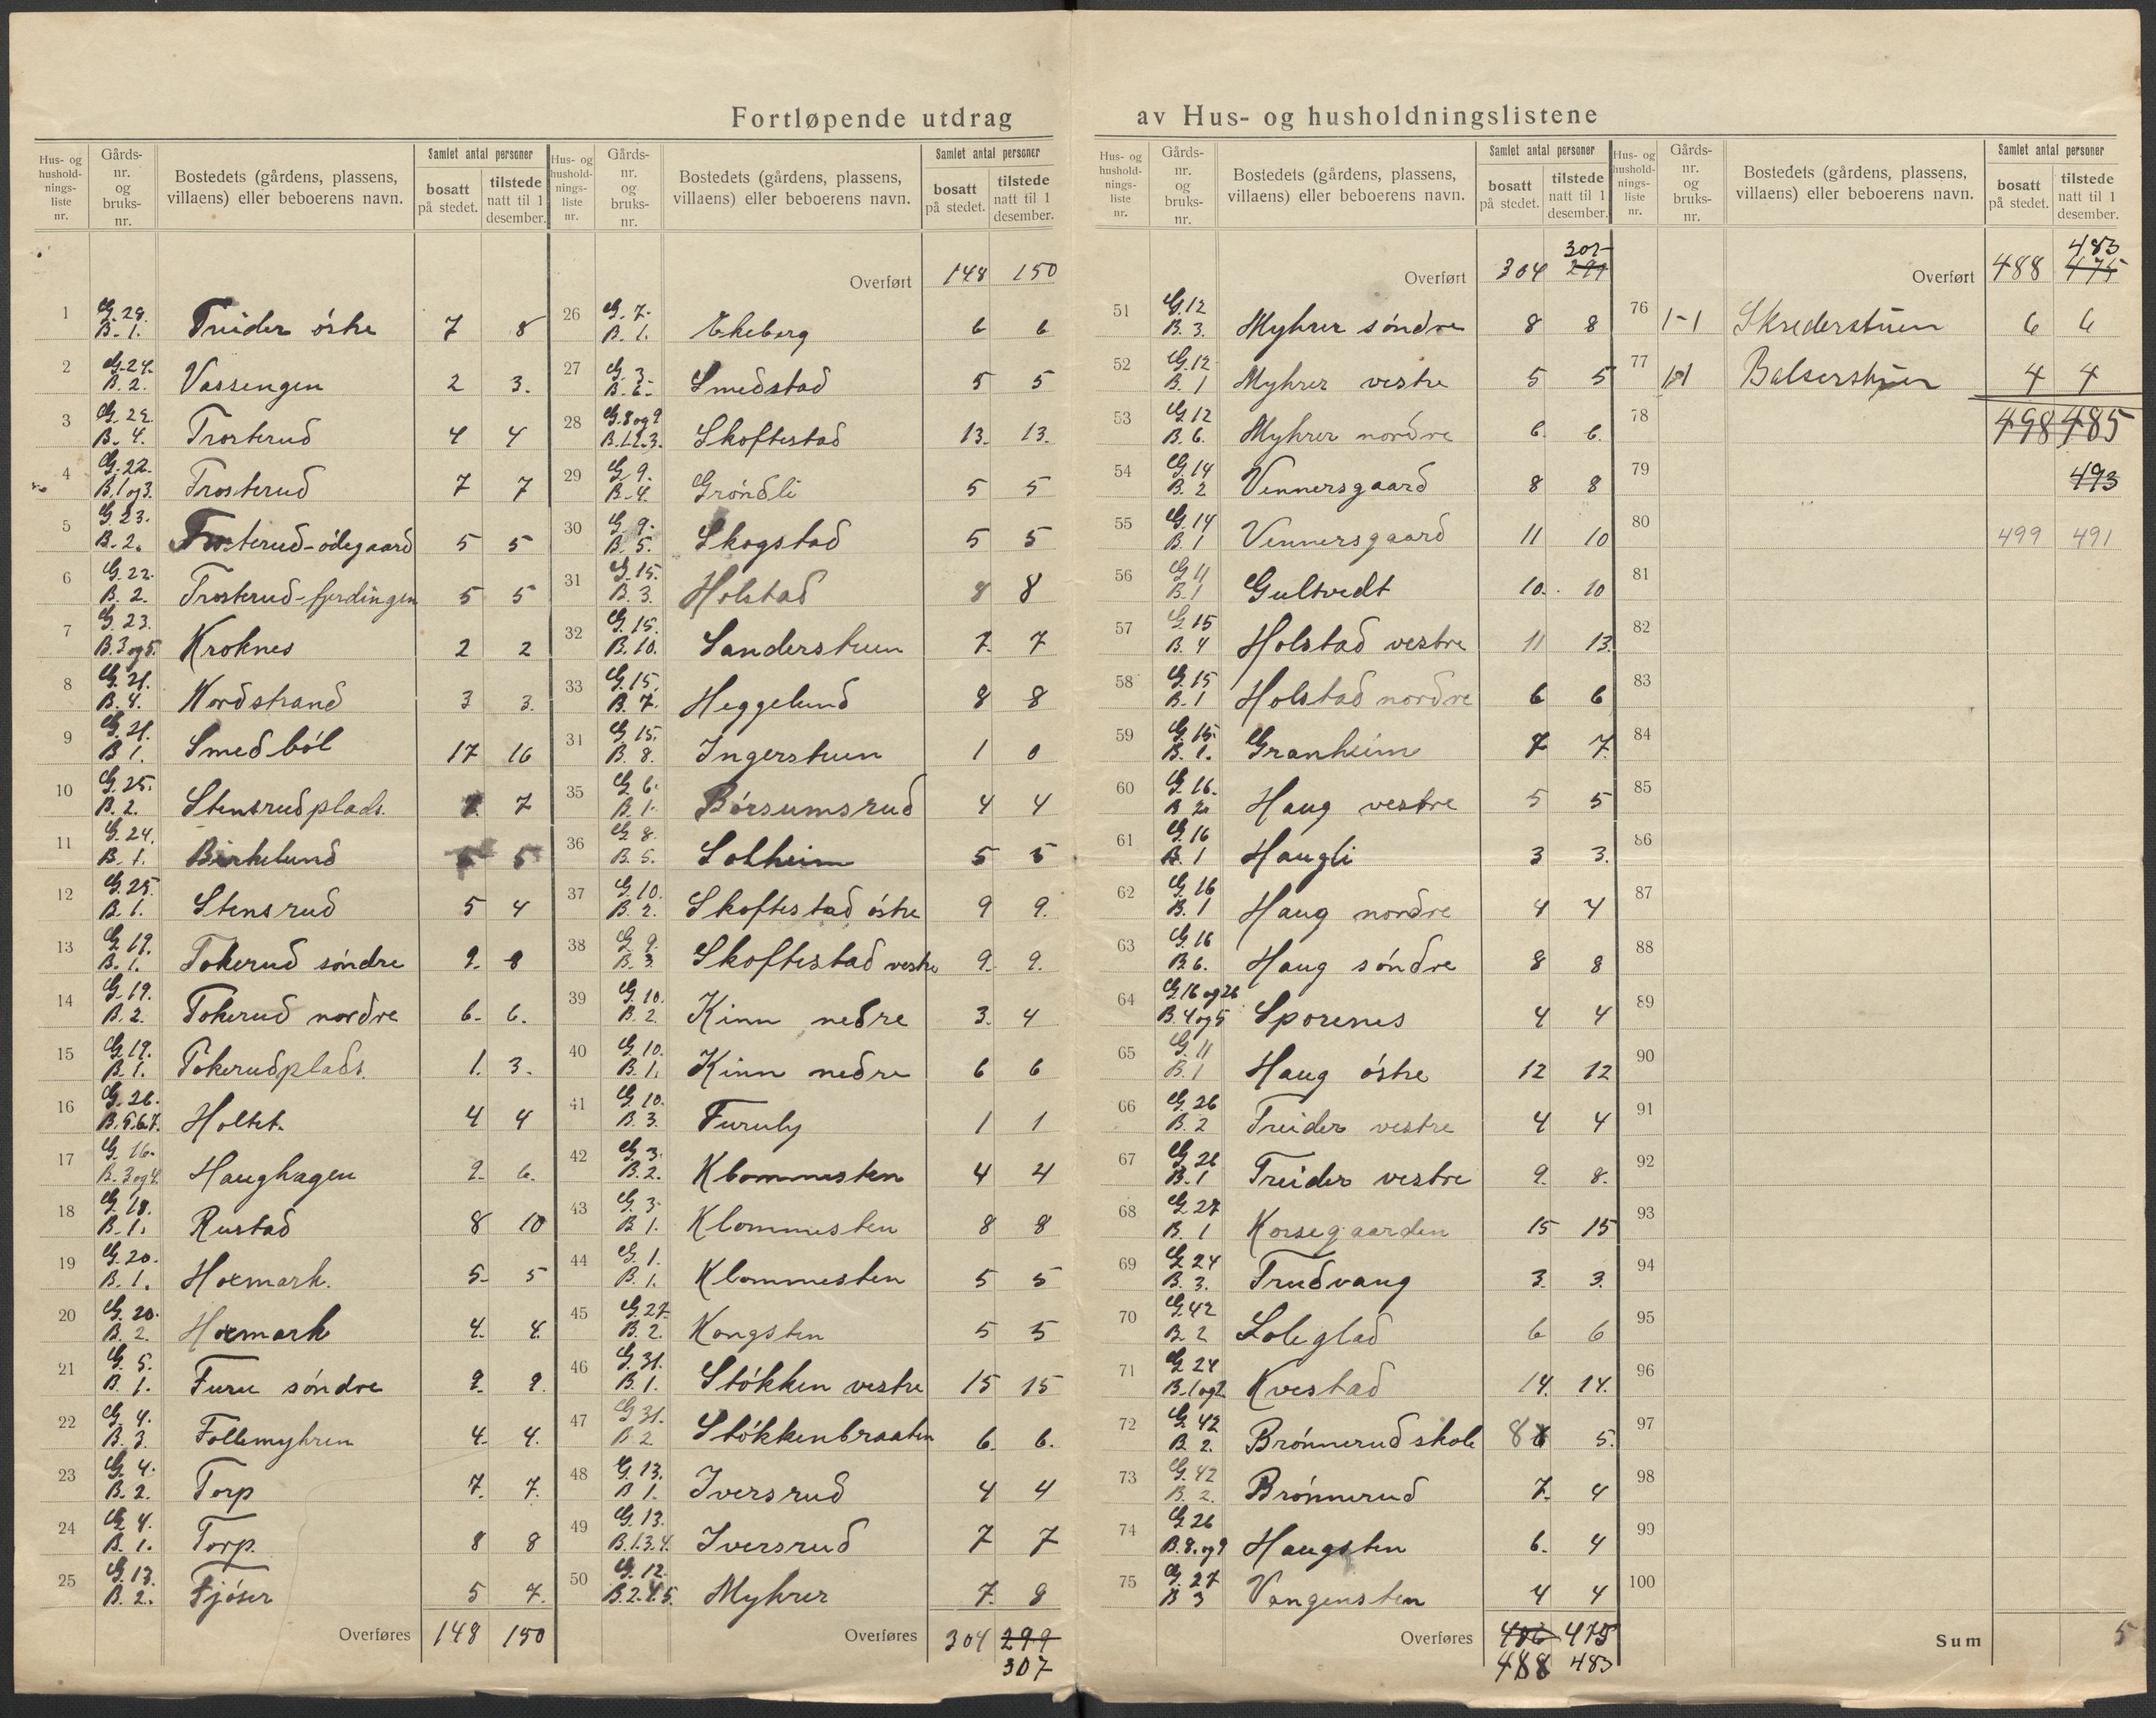 Fortløpende utdrag av Hus- og husholdningslistene
Hus- og hushold-nings-liste nr. | Gårds-nr. og bruks-nr. | Bostedets (gårdens, plassens, villaens) eller beboerens navn. | Samlet antal personer | bosatt på stedet. | tilstede natt til 1 desember.
1 G. 28. B. 1. Treider östre 7 8
2 G. 24. B. 2. Vassengen 2 3.
3 G. 22. B. 4. Trosterud 4 4
4 G. 22. B. 1 og 3. Trosterud 7 7
5 G. 23. B. 2. Trosterud-ödegaard 5 5
6 G. 22. B. 2. Trosterud-fjerdingen 5 5
7 G. 23. B. 3 og 5. Kroknes 2 2
8 G. 21. B. 4. Nordstrand 3 3.
9 G. 21. B 1. Smedböl 17 16
10 G. 25. B. 2. Stensrudplads. 7. 7
11 G. 24. B. 1. Birkelund 5 5
12 G. 25. B. 1. Stensrud 5 4
13 G. 19. B. 1. Tokerud söndre 9. 8
14 G. 19. B. 2. Tokerud nordre 6. 6.
15 G. 19. B. 1. Tokerudplads. 1. 3.
16 G. 26. B. 5.6.7. Holtet. 4 4
17 G. 16. B. 3 og 4. Haughagen 9. 6.
18 G. 18. B. 1. Rustad 8 10
19 G. 20. B. 1. Hoxmark. 5. 5
20 G. 20. B. 2. Hoxmark 4. 4.
21 G. 5. B. 1. Furu söndre 9. 9.
22 G. 4. B. 3. Follemyhren 4. 4.
23 G. 4. B. 2. Torp 7. 7.
24 G. 4. B. 1. Torp. 8 8
25 G. 13. B. 2. Fjöser 5 7.
Overføres 148 150
Hus- og hushold-nings-liste nr. | Gårds-nr. og bruks-nr. | Bostedets (gårdens, plassens, villaens) eller beboerens navn. | Samlet antal personer | bosatt på stedet. | tilstede natt til 1 desember.
Overført 148 150
26 G. 7. B. 1. Ekeberg 6 6
27 G. 3. B. 6. Smedstad 5 5
28 G. 8 og 9 B. 1.2.3. Skoftestad 13. 13.
29 G. 9. B. 4. Gröndli 5 5
30 G. 9. B. 5. Skogstad 5 5
31 G. 15. B. 3. Holstad 8 8
32 G. 15. B. 10. Sanderstuen 7. 7
33 G. 15. B. 7. Heggelund 8 8
31 G. 15. B. 8. Ingerstuen 1 0
35 G. 6. B. 1. Börsumsrud 4 4
36 G. 8. B. 5. Solheim 5 5
37 G. 10. B. 2. Skoftestad östre 9 9.
38 G. 9. B. 3. Skoftestad vestre 9. 9.
39 G. 10. B. 2. Kinn nedre 3. 4
40 G. 10. B. 1. Kinn nedre 6 6
41 G. 10. B. 3. Furuly 1 1
42 G. 3. B. 2. Klommesten 4 4
43 G. 3. B 1. Klommesten 8 8
44 G. 1. B. 1. Klommesten 5 5
45 G. 27. B. 2. Kongsten 5 5
46 G. 31. B. 1. Stökken vestre 15 15
47 G 31. B 2 Stökkenbraaten 6. 6.
48 G. 13. B 1. Iversrud 4 4
49 G. 13. B. 1.3.4. Iversrud 7 7
50 G. 12. B. 2.4.5. Myhrer 7. 8
Overføres 304 299
307
Hus- og hushold-nings-liste nr. | Gårds-nr. og bruks-nr. | Bostedets (gårdens, plassens, villaens) eller beboerens navn. | Samlet antal personer | bosatt på stedet. | tilstede natt til 1 desember.
307
Overført 304 299
51 G. 12 B. 3. Myhrer söndre 8 8
52 G. 12 B. 1 Myhrer vestre 5 5
53 G. 12 B. 6. Myhrer nordre 6. 6.
54 G. 14 B. 2 Vennersgaard 8 8
55 G. 14 B. 1 Vennersgaard 11 10
56 G 11 B. 1 Gultvedt 10. 10
57 G. 15 B. 4 Holstad vestre 11 13.
58 G. 15 B. 1 Holstad nordre 6 6
59 G. 15. B. 1. Granheim 7 7.
60 G. 16. B. 2. Haug vestre 5 5
61 G. 16 B. 1 Haugli 3 3.
62 G. 16 B. 1 Haug nordre 4 4
63 G. 16 B. 6. Haug söndre 8 8
64 G. 16 og 26 B. 4 og 5 Sporenes 4 4
65 G. 11 B. 1 Haug östre 12 12
66 G. 26 B. 2 Treider vestre 4 4
67 G. 26 B. 1 Treider vestre 9. 8.
68 G. 27 B. 1 Korsegaarden 15 15
69 G. 24 B. 3. Trudvang 3. 3.
70 G. 42 B. 2 Soleglad 6 6
71 G 24 B. 1 og 2 Kvestad 14. 14.
72 G. 42 B. 2. Brönnerud skole 8 6 5.
73 G. 42 B. 2. Brönnerud 7. 4
74 G. 26 B. 8. og 9 Haugsten 6. 4
75 G. 27 B 3 Vangensten 4 4
Overføres 486 475
488 483
Hus- og hushold-nings-liste nr. | Gårds-nr. og bruks-nr. | Bostedets (gårdens, plassens, villaens) eller beboerens navn. | Samlet antal personer | bosatt på stedet. | tilstede natt til 1 desember.
483
Overført 488 475
76 1-1 Skrederstuen 6 6
77 1-1 Balserstuen 4 4
78 498 485
79 493
80 499 491
81
82
83
84
85
86
87
88
89
90
91
92
93
94
95
96
97
98
99
100
Sum 5